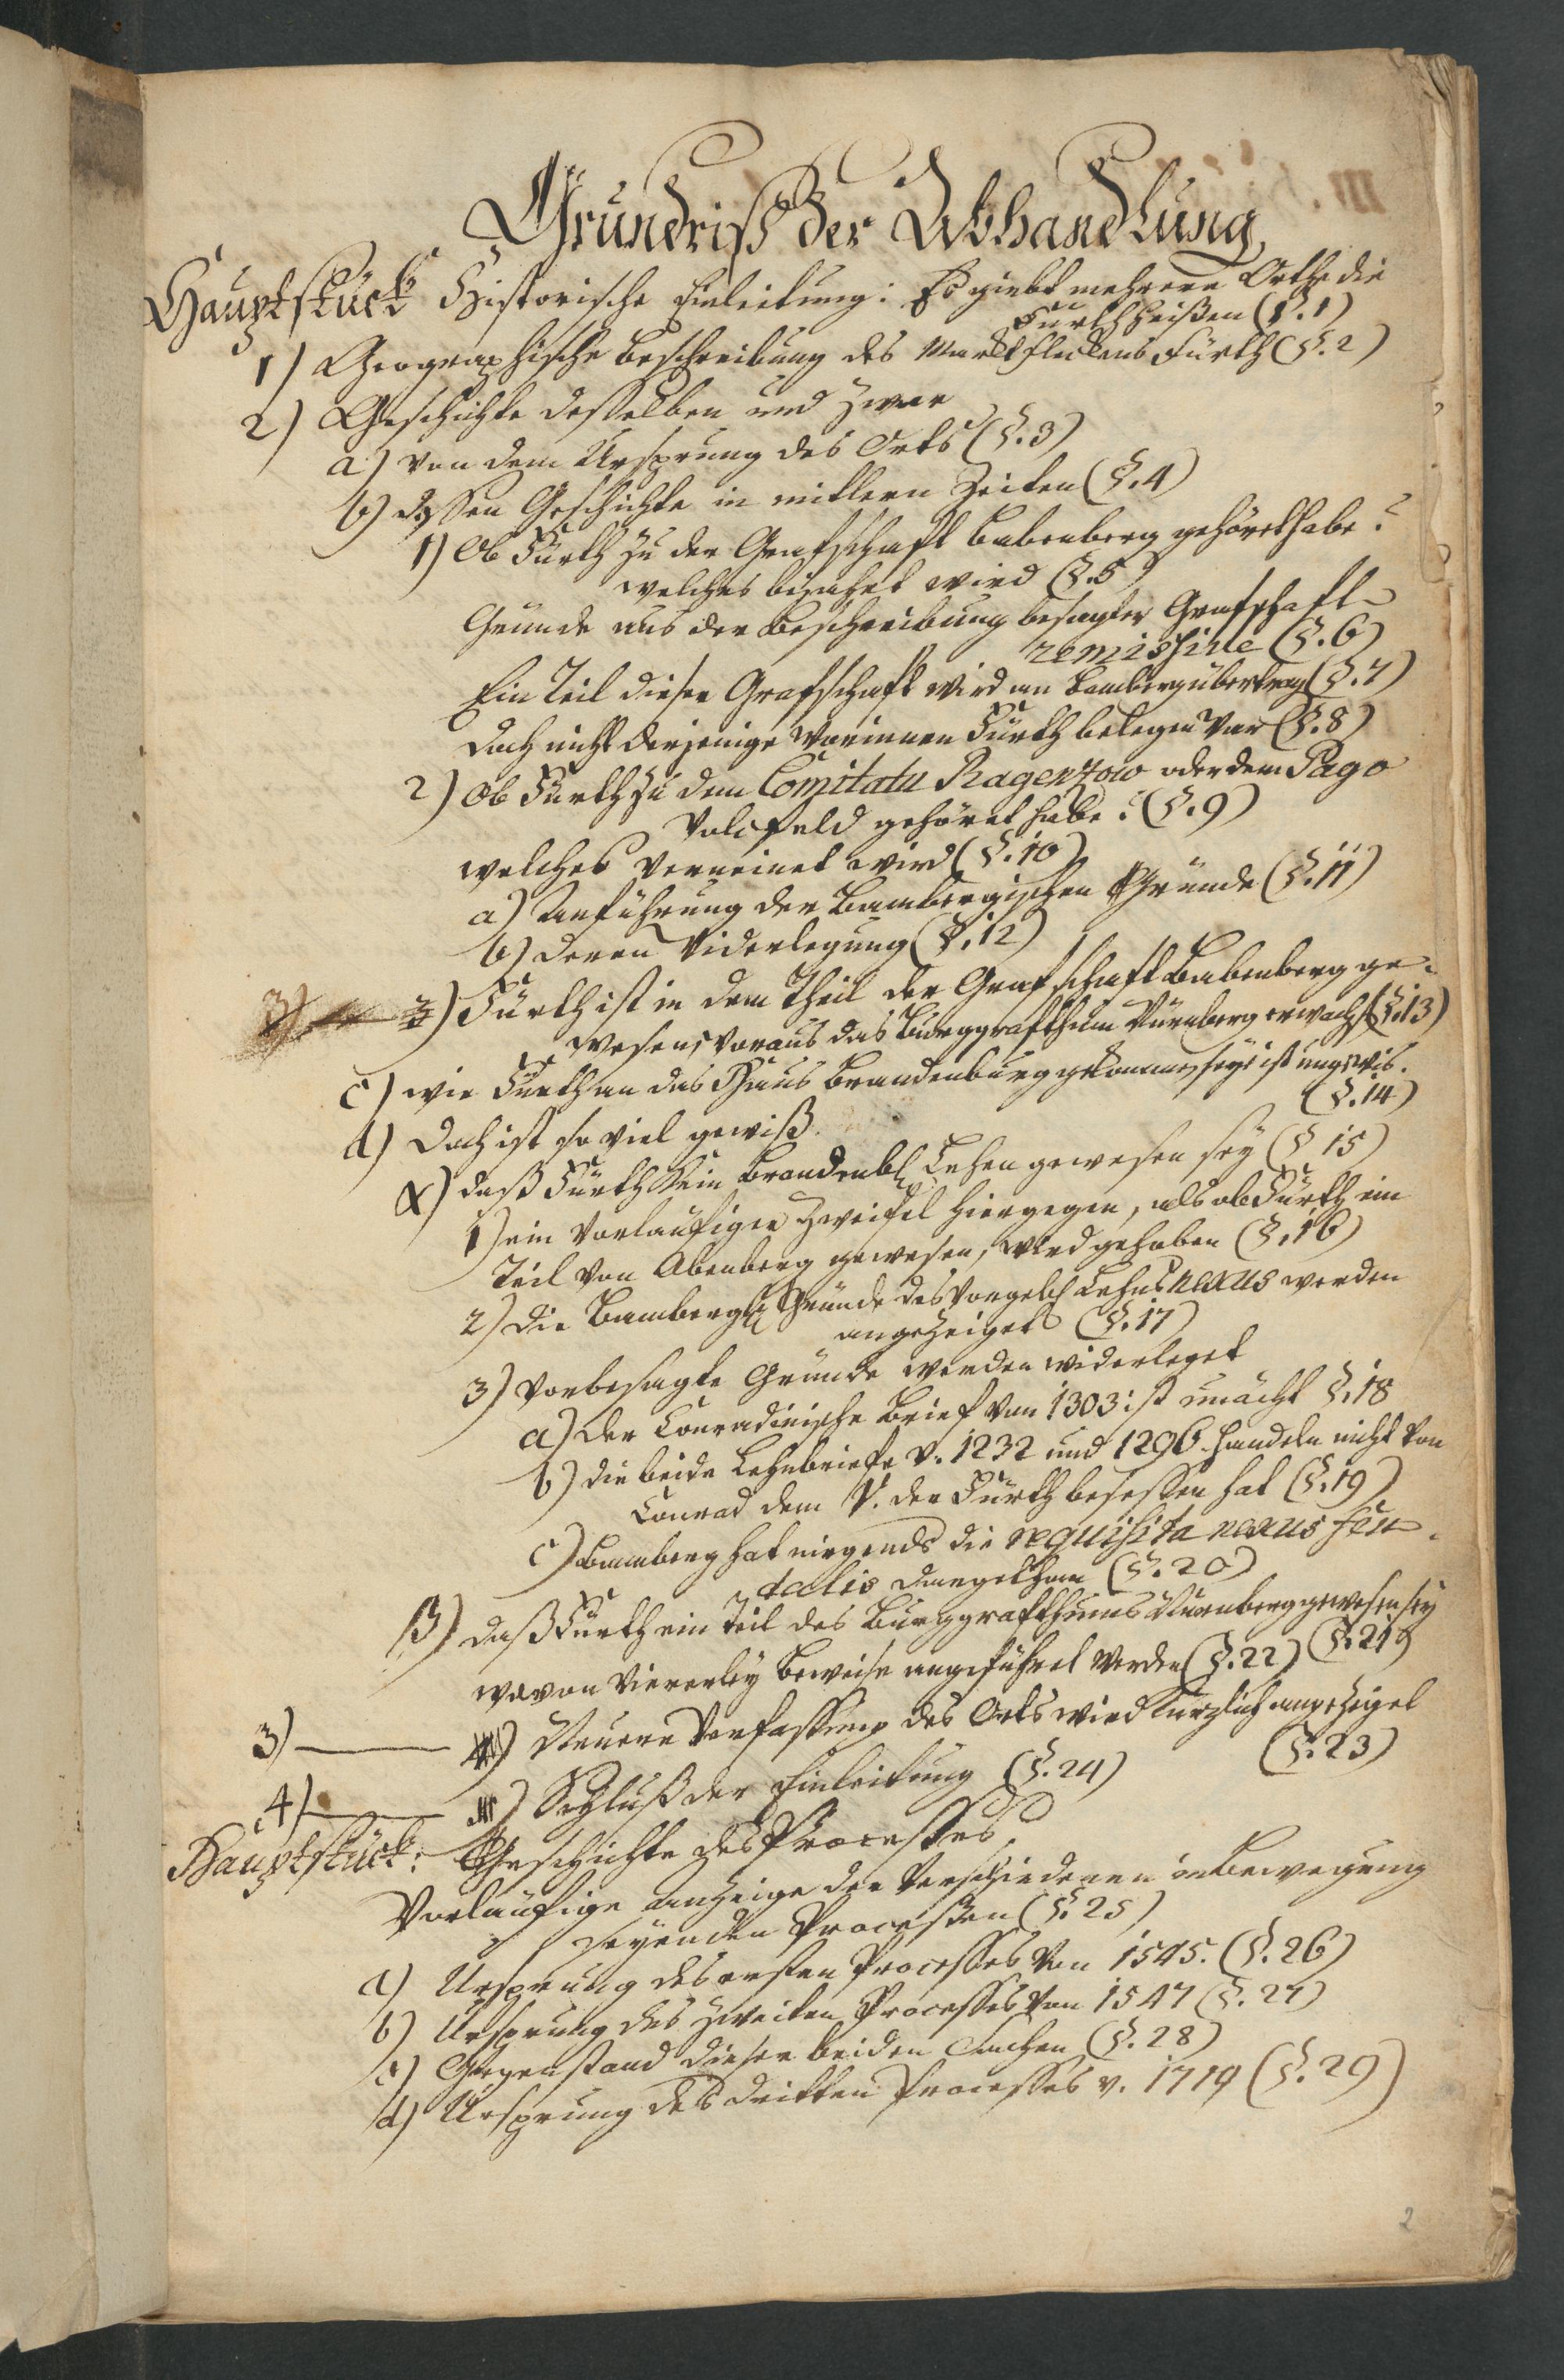 Grundriß der Abhandlung,
Hauptstück Historische Einleitung: Es giebt mehrere Orthe die
Fürth heißen (§. 1)
1) Geographische Beschreibung des Marktfleckens Fürth (§. 2)
2) Geschichte deßelben und zwar
a) von dem Ursprung des Orts (§. 3)
b) deßen Geschichte in mitlern Zeiten (§. 4)
1) Ob Fürth zu der Grafschaft Babenberg gehöret habe?
welches bejahet wird (§. 5
Gründe aus der Beschreibung besagter Grafschaft
remissive (§. 6)
Ein Teil dieser Grafschaft wird an Bamberg übertrag (§. 7)
doch nicht derjenige worinnen Fürth belegen war (§. 8)
2) Ob Fürth zu dem Comitatu Ragenzow oder dem Pago
Volcfeld gehöret habe? (§. 9)
welches verneinet wird (§. 10)
a) Anführung der Bambergischen Gründe (§. 11)
b) deren Widerlegung (§. 12)
3) Fürth ist in dem Theil der Grafschaft Babenberg ge-
wesen, woraus das Burggrafthum Nürnberg erwachs (§. 13)
c) wie Fürth an das Haus Brandenburg gekommen seye ist ungewis.
(§. 14)
d) Doch ist so viel gewiß.
α) daß Fürth kein Brandenbl Lehen gewesen sey (§ 15)
1) ein vorlaufiger Zweifel hiergegen, als ob Fürth ein
Teil von Abenberg gewesen, wird gehoben (§. 16)
2) die Bambergl Gründe des vorgebl Lehns nexus werden
angezeiget (§. 17)
3) vorbesagte Gründe werden widerleget
a) der Conradinische Brief von 1303 ist unächt §. 18
b) die beide Lehnbriefe v. 1232 und 1296 handeln nicht von
Conrad dem P. der Fürth beseßen hat (§. 19)
c) Bamberg hat nirgends die requisita nexus feu-
dalis dargethan (§. 20)
β) daß Fürth ein Teil des Burggrafthums Nürnberg gewesen sey
(§. 21)
wovon viererley Beweise angeführet werden (§. 22)
3) Neuere Verfaßung des Orts wird kürzlich angezeiget
(§. 23)
4) Schluß der Einleitung (§. 24)
Hauptstück: Geschichte des Processes,
Vorläufige Anzeige der verschiedenen in Bewegung
seyenden Proceßen (§. 25)
a) Ursprung des ersten Processes von 1545. (§. 26)
b) Ursprung des zweiten Processes von 1547 (§. 27)
c) Gegenstand dieser beiden Sachen (§. 28)
d) Ursprung des dritten Processes v. 1719 (§. 29)
2